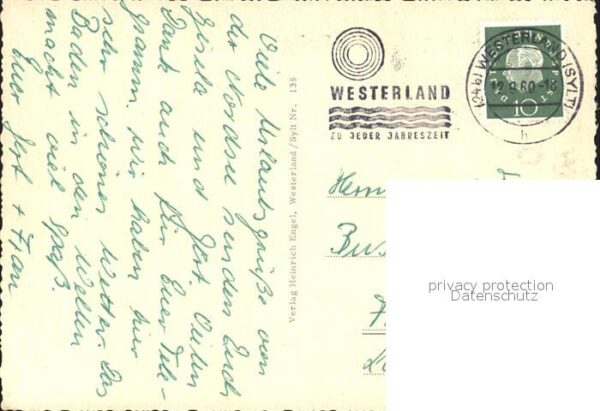 Viele Urlaubsgrüße von
der Nordsee senden Euch
Gisela und Gert. Vielen
Dank auch für Euer Tele-
gramm. Wir haben hier
sehr schönes Wetter. Das
Baden in den Wellen
macht viel Spaß.
Euer Gert + Frau
Verlag Heinrich Engel, Westerland/Sylt Nr. 135
WESTERLAND
ZU JEDER JAHRESZEIT
(24b) WESTERLAND (SYLT)
12.9.60-18
h
10
privacy protection
Datenschutz